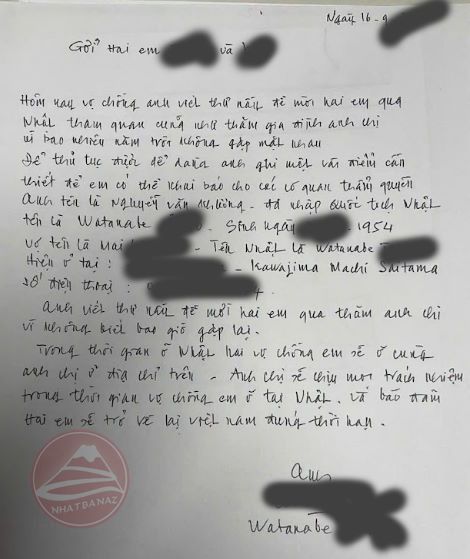 Ngày 16-9
Gởi Hai em và
Hôm nay vợ chồng anh viết thư nầy để mời hai em qua
Nhật tham quan cũng như thăm gia đình anh chị
vì bao nhiêu năm trời không gặp mặt nhau
Để thủ tục được dể dàng anh ghi một vài điểm cần
thiết để em có thể khai báo cho các cơ quan thẩm quyền
Anh tên là Nguyễn văn. đã nhập quốc tịch Nhật
tên là Watanabe - Sinh ngày 1954
vợ tên là Mai - Tên Nhật là Watanabe
Hiện ở tại : - Kawajima Machi Saitama
Số điện thoại :
Anh viết thư nầy để mời hai em qua thăm anh chị
vì không biết bao giờ gặp lại.
Trong thời gian ở Nhật hai vợ chồng em sẽ ở cùng
anh chị ở địa chỉ trên - Anh chị sẽ chịu mọi trách nghiệm
trong thời gian vợ chồng em ở tại Nhật. và bảo đảm
Hai em sẽ trở về lại việt nam đúng thời hạn.
Anh
Watanabe
NHATBANAZ